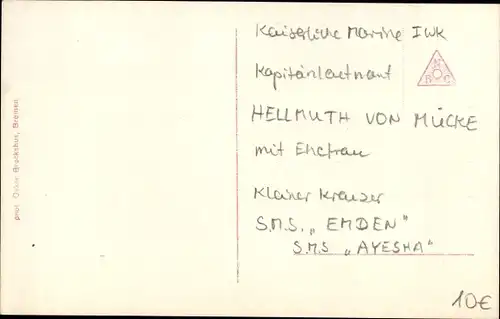 Kaiserliche Marine I WK
Kapitänleutnant
HELLMUTH VON MÜCKE
mit Ehefrau
Kleiner Kreuzer
S.M.S. „EMDEN"
S.M.S „AYESHA"
10€
phot. Oskar Brockshus, Bremen.